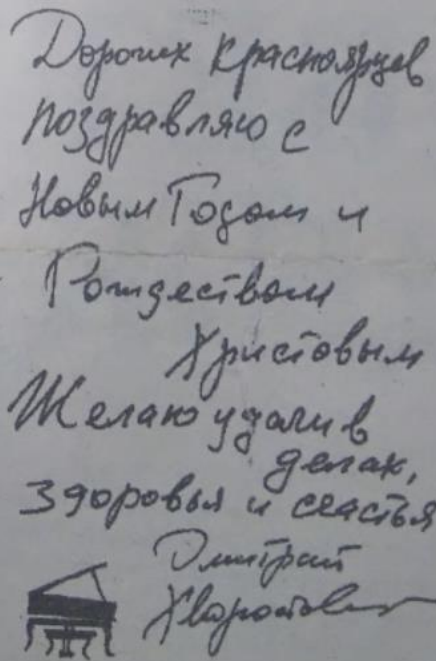 Дорогих красноярцев
поздравляю с
Новым Годом и
Рождеством
Христовым
Желаю удачи в
делах,
здоровья и счастья
Дмитрий
Хворостовский